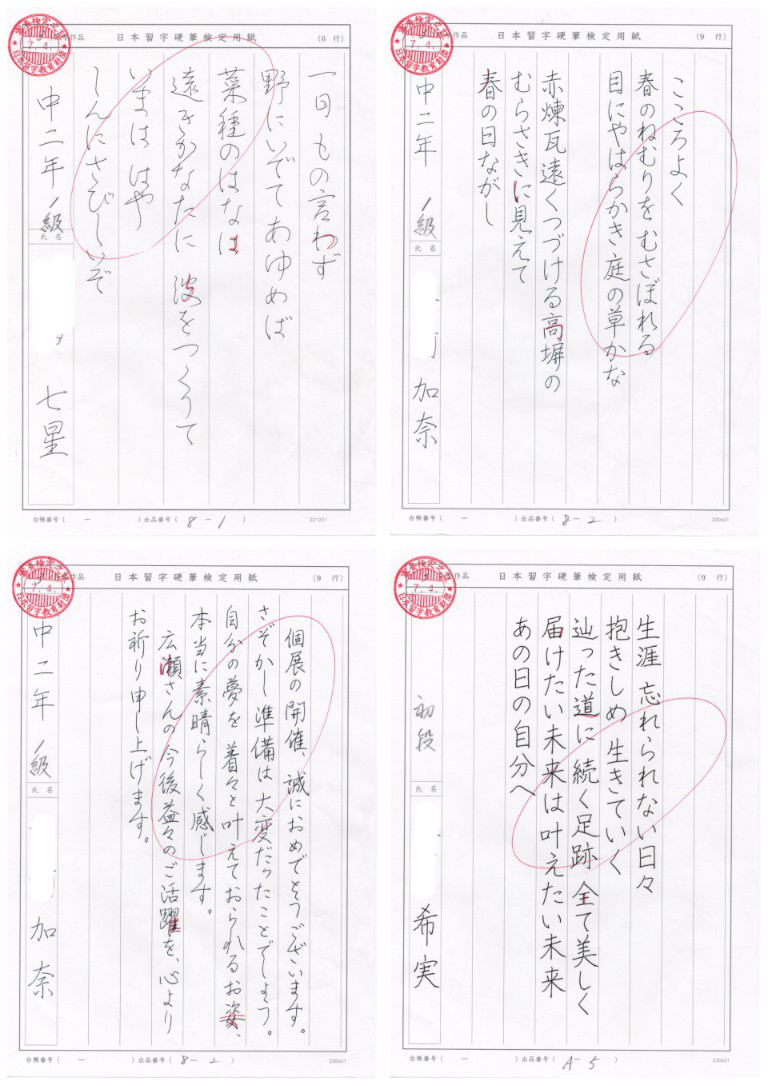 作品
日本習字硬筆検定用紙
(6 行)
一日もの言わず
野にいでてあゆめば
菜種のはなは
遠きかなたに 波をつくりて
いまは はや
しんにさびしいぞ
中二年
1級
氏名
七星
台帳番号( ー )出品番号( 8-1 )
221201
7.4.
日本習字教育財団
作品
日本習字硬筆検定用紙
(9 行)
こころよく
春のねむりをむさぼれる
目にやはらかき庭の草かな
赤煉瓦遠くつづける高塀の
むらさきに見えて
春の日ながし
中二年
1級
氏名
加奈
台帳番号( ー )出品番号( 8-2 )
230401
7.4.
日本習字教育財団
作品
日本習字硬筆検定用紙
(9 行)
個展の開催、誠におめでとうございます。
さぞかし準備は大変だったことでしょう。
自分の夢を着々と叶えておられるお姿、
本当に素晴らしく感じます。
広瀬さんの今後益々のご活躍を、心より
お祈り申し上げます。
中二年
1級
氏名
加奈
台帳番号( ー )出品番号( 8-2 )
230401
7.4.
日本習字教育財団
作品
日本習字硬筆検定用紙
(9 行)
生涯 忘れられない日々
抱きしめ 生きていく
辿った道に続く足跡 全て美しく
届けたい未来は叶えたい未来
あの日の自分へ
初段
氏名
希実
台帳番号( ー )出品番号( A-5 )
230401
7.4.
日本習字教育財団